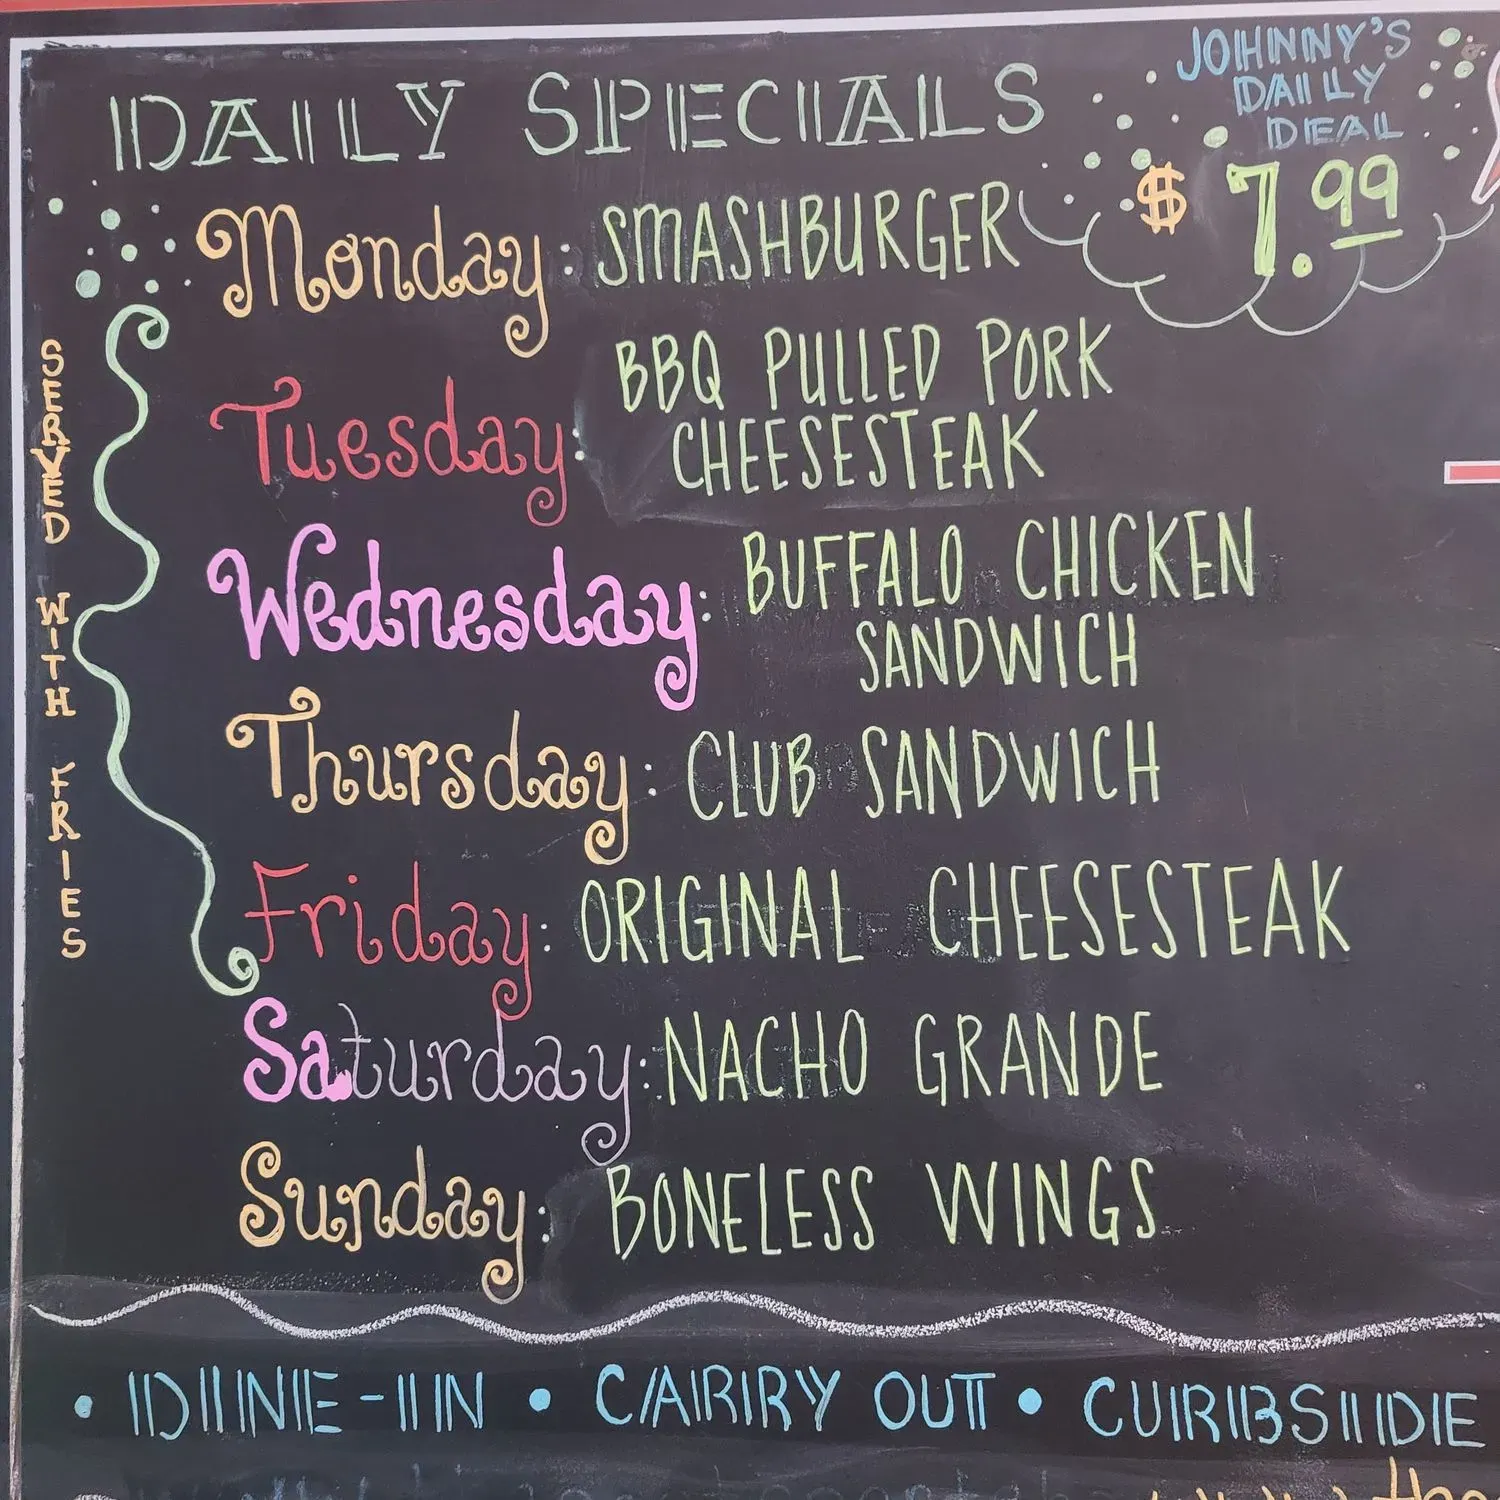 DAILY SPECIALS
JOHNNY'S
DAILY
DEAL
$ 7.99
SERVED WITH FRIES
Monday: SMASHBURGER
Tuesday: BBQ PULLED PORK
CHEESESTEAK
Wednesday: BUFFALO CHICKEN
SANDWICH
Thursday: CLUB SANDWICH
Friday: ORIGINAL CHEESESTEAK
Saturday: NACHO GRANDE
Sunday: BONELESS WINGS
• DINE-IN • CARRY OUT • CURBSIDE